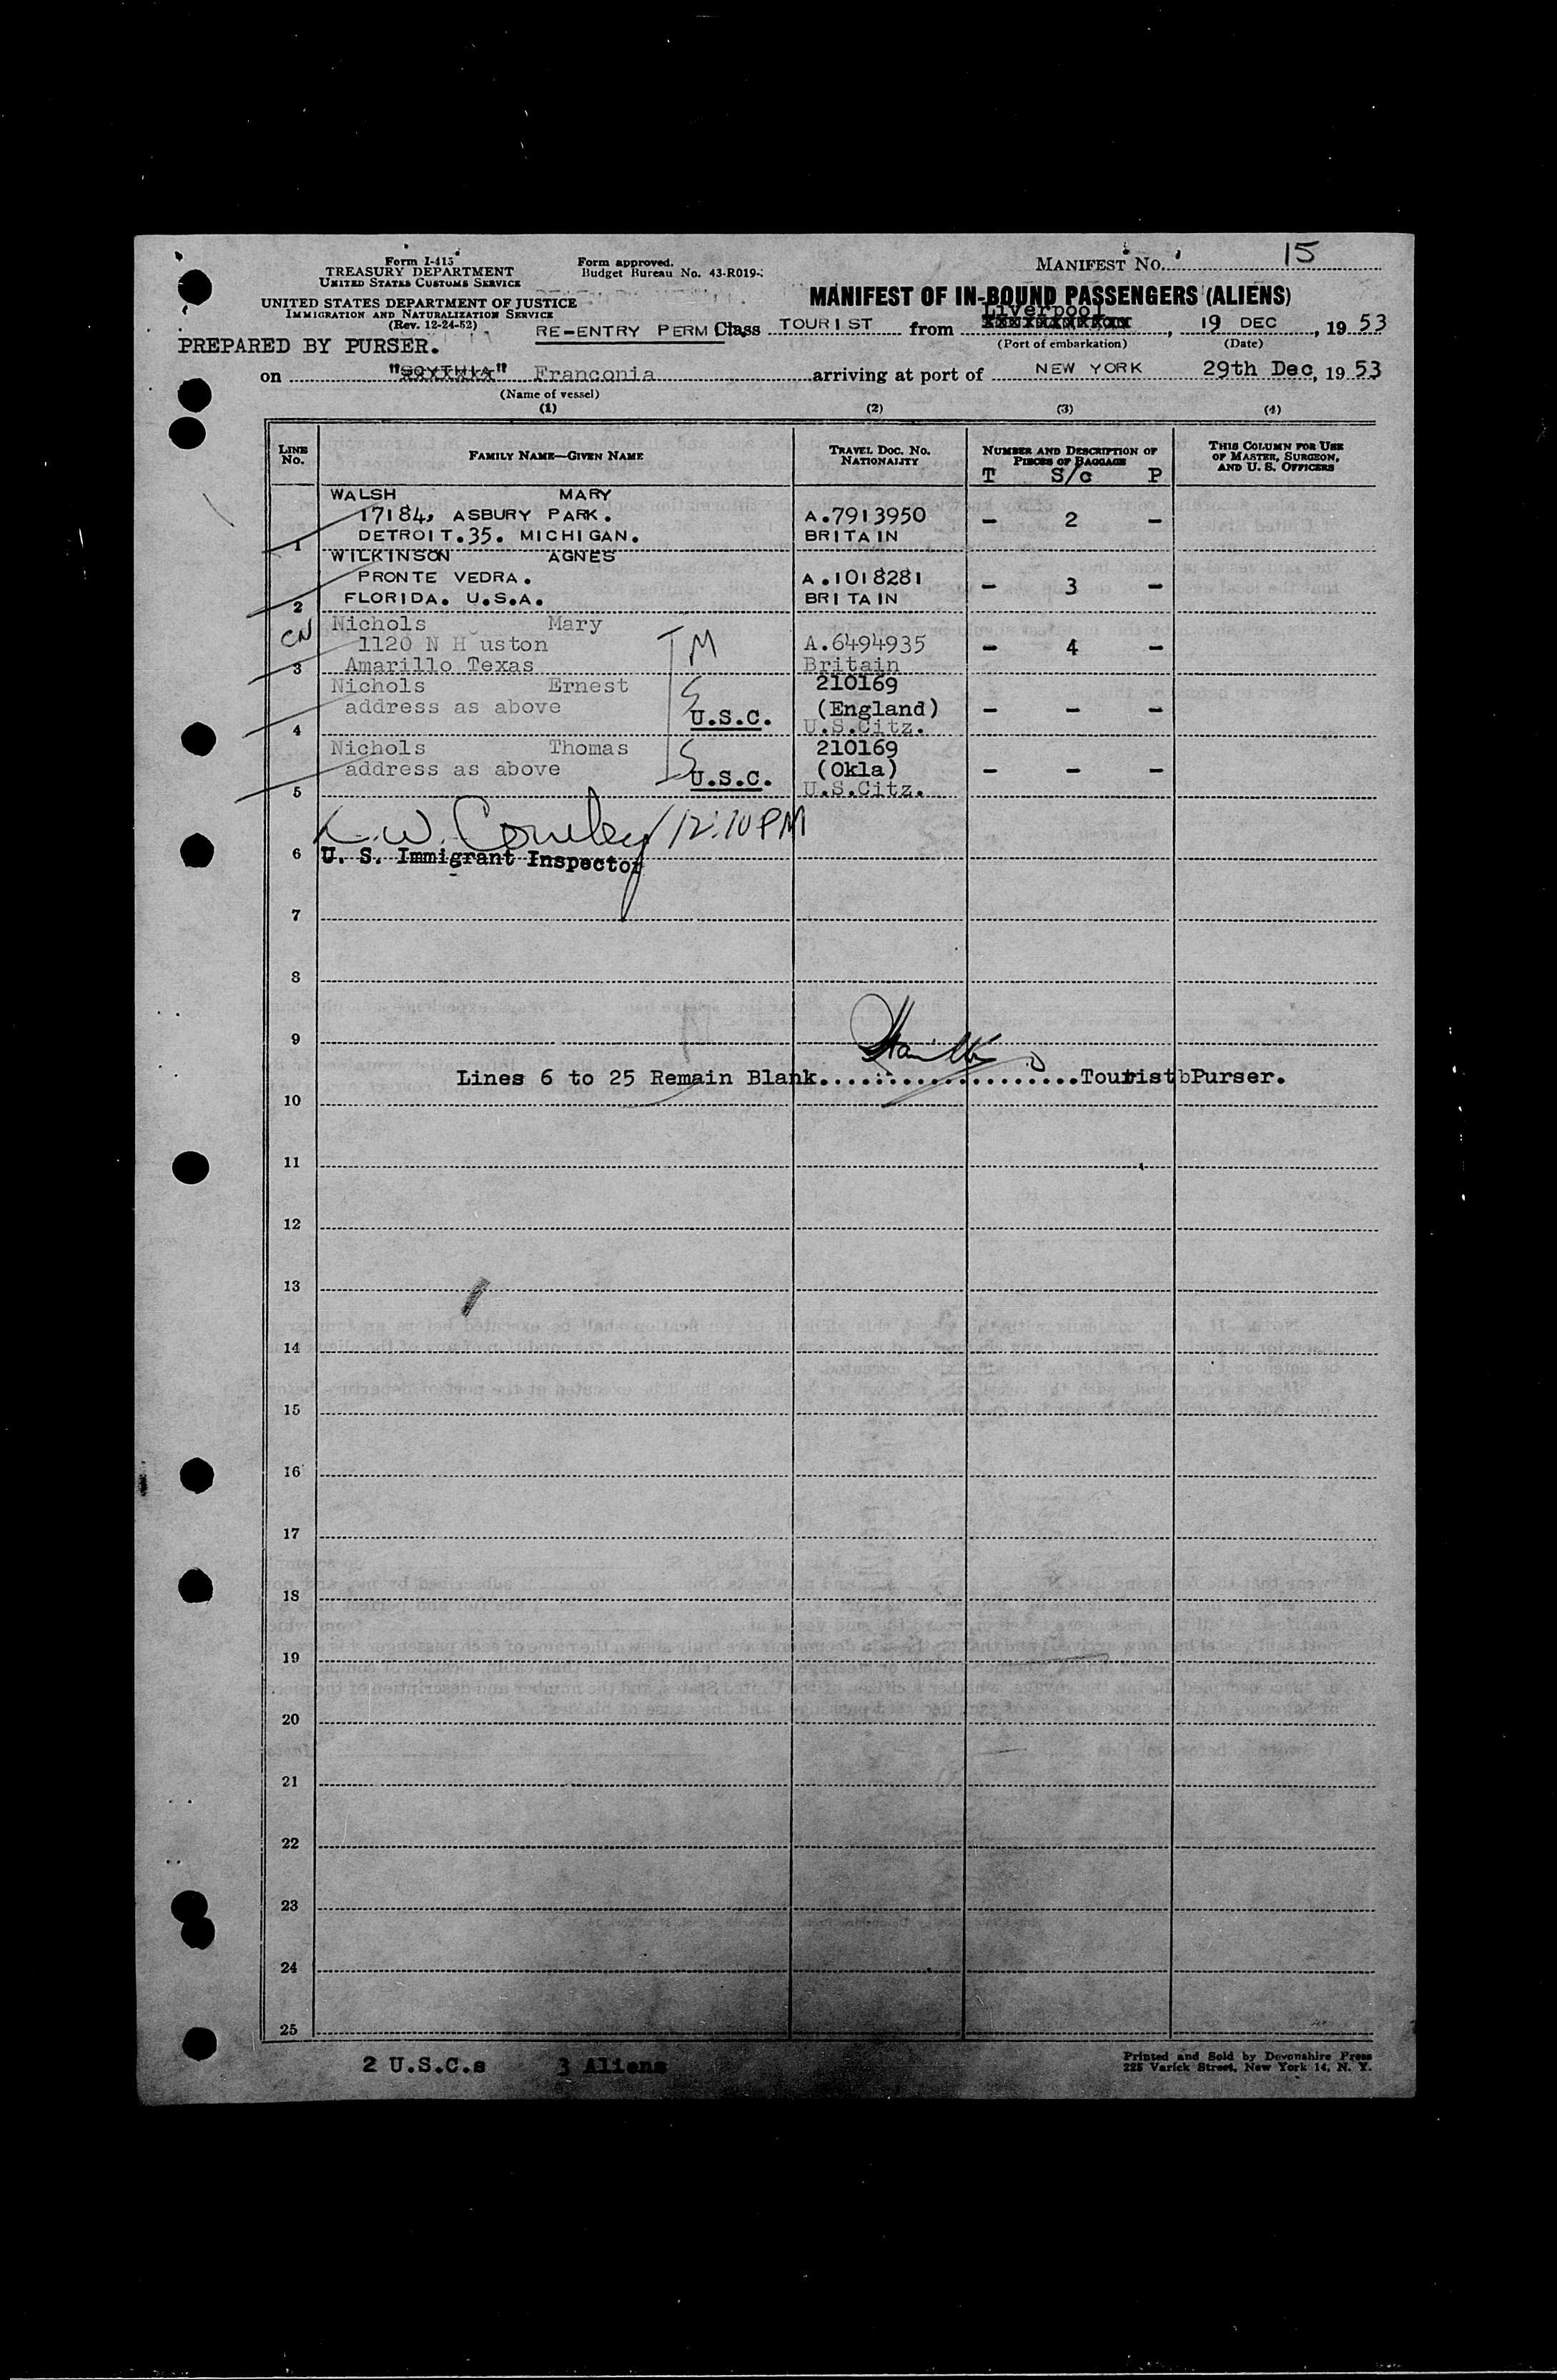 Form I-415
TREASURY DEPARTMENT
UNITED STATES CUSTOMS SERVICE
UNITED STATES DEPARTMENT OF JUSTICE
IMMIGRATION AND NATURALIZATION SERVICE
(Rev. 12-24-52)
PREPARED BY PURSER.
Form approved.
Budget Bureau No. 43-R019-
MANIFEST NO. 15
MANIFEST OF IN-BOUND PASSENGERS (ALIENS)
Liverpool
RE-ENTRY PERM Class TOURIST from , 19 DEC , 19 53
(Port of embarkation) (Date)
on "SCYTHIA" Franconia arriving at port of NEW YORK 29th Dec, 19 53
(Name of vessel)
(1) (2) (3) (4)
LINE NO. FAMILY NAME—GIVEN NAME TRAVEL DOC. NO. NATIONALITY NUMBER AND DESCRIPTION OF PIECES OF BAGGAGE THIS COLUMN FOR USE OF MASTER, SURGEON, AND U. S. OFFICERS
T S/c P
WALSH MARY
17184, ASBURY PARK. A.7913950 - 2 -
DETROIT.35. MICHIGAN. BRITAIN
1
WILKINSON AGNES
PRONTE VEDRA. A.1018281 - 3 -
FLORIDA. U.S.A. BRITAIN
2
CN Nichols Mary
1120 N H uston M A.6494935 - 4 -
3 Amarillo Texas Britain
Nichols Ernest 210169
address as above S U.S.C. (England) - - -
4 U.S.Citz.
Nichols Thomas 210169
address as above S U.S.C. (Okla) - - -
5 U.S.Citz.
12:10 PM
6 U. S. Immigrant Inspector
7
8
9
Lines 6 to 25 Remain Blank.....................Tourist Purser.
10
11
12
13
14
15
16
17
18
19
20
21
22
23
24
25
2 U.S.C.s 3 Aliens
Printed and Sold by Devonshire Press
225 Varick Street, New York 14, N. Y.